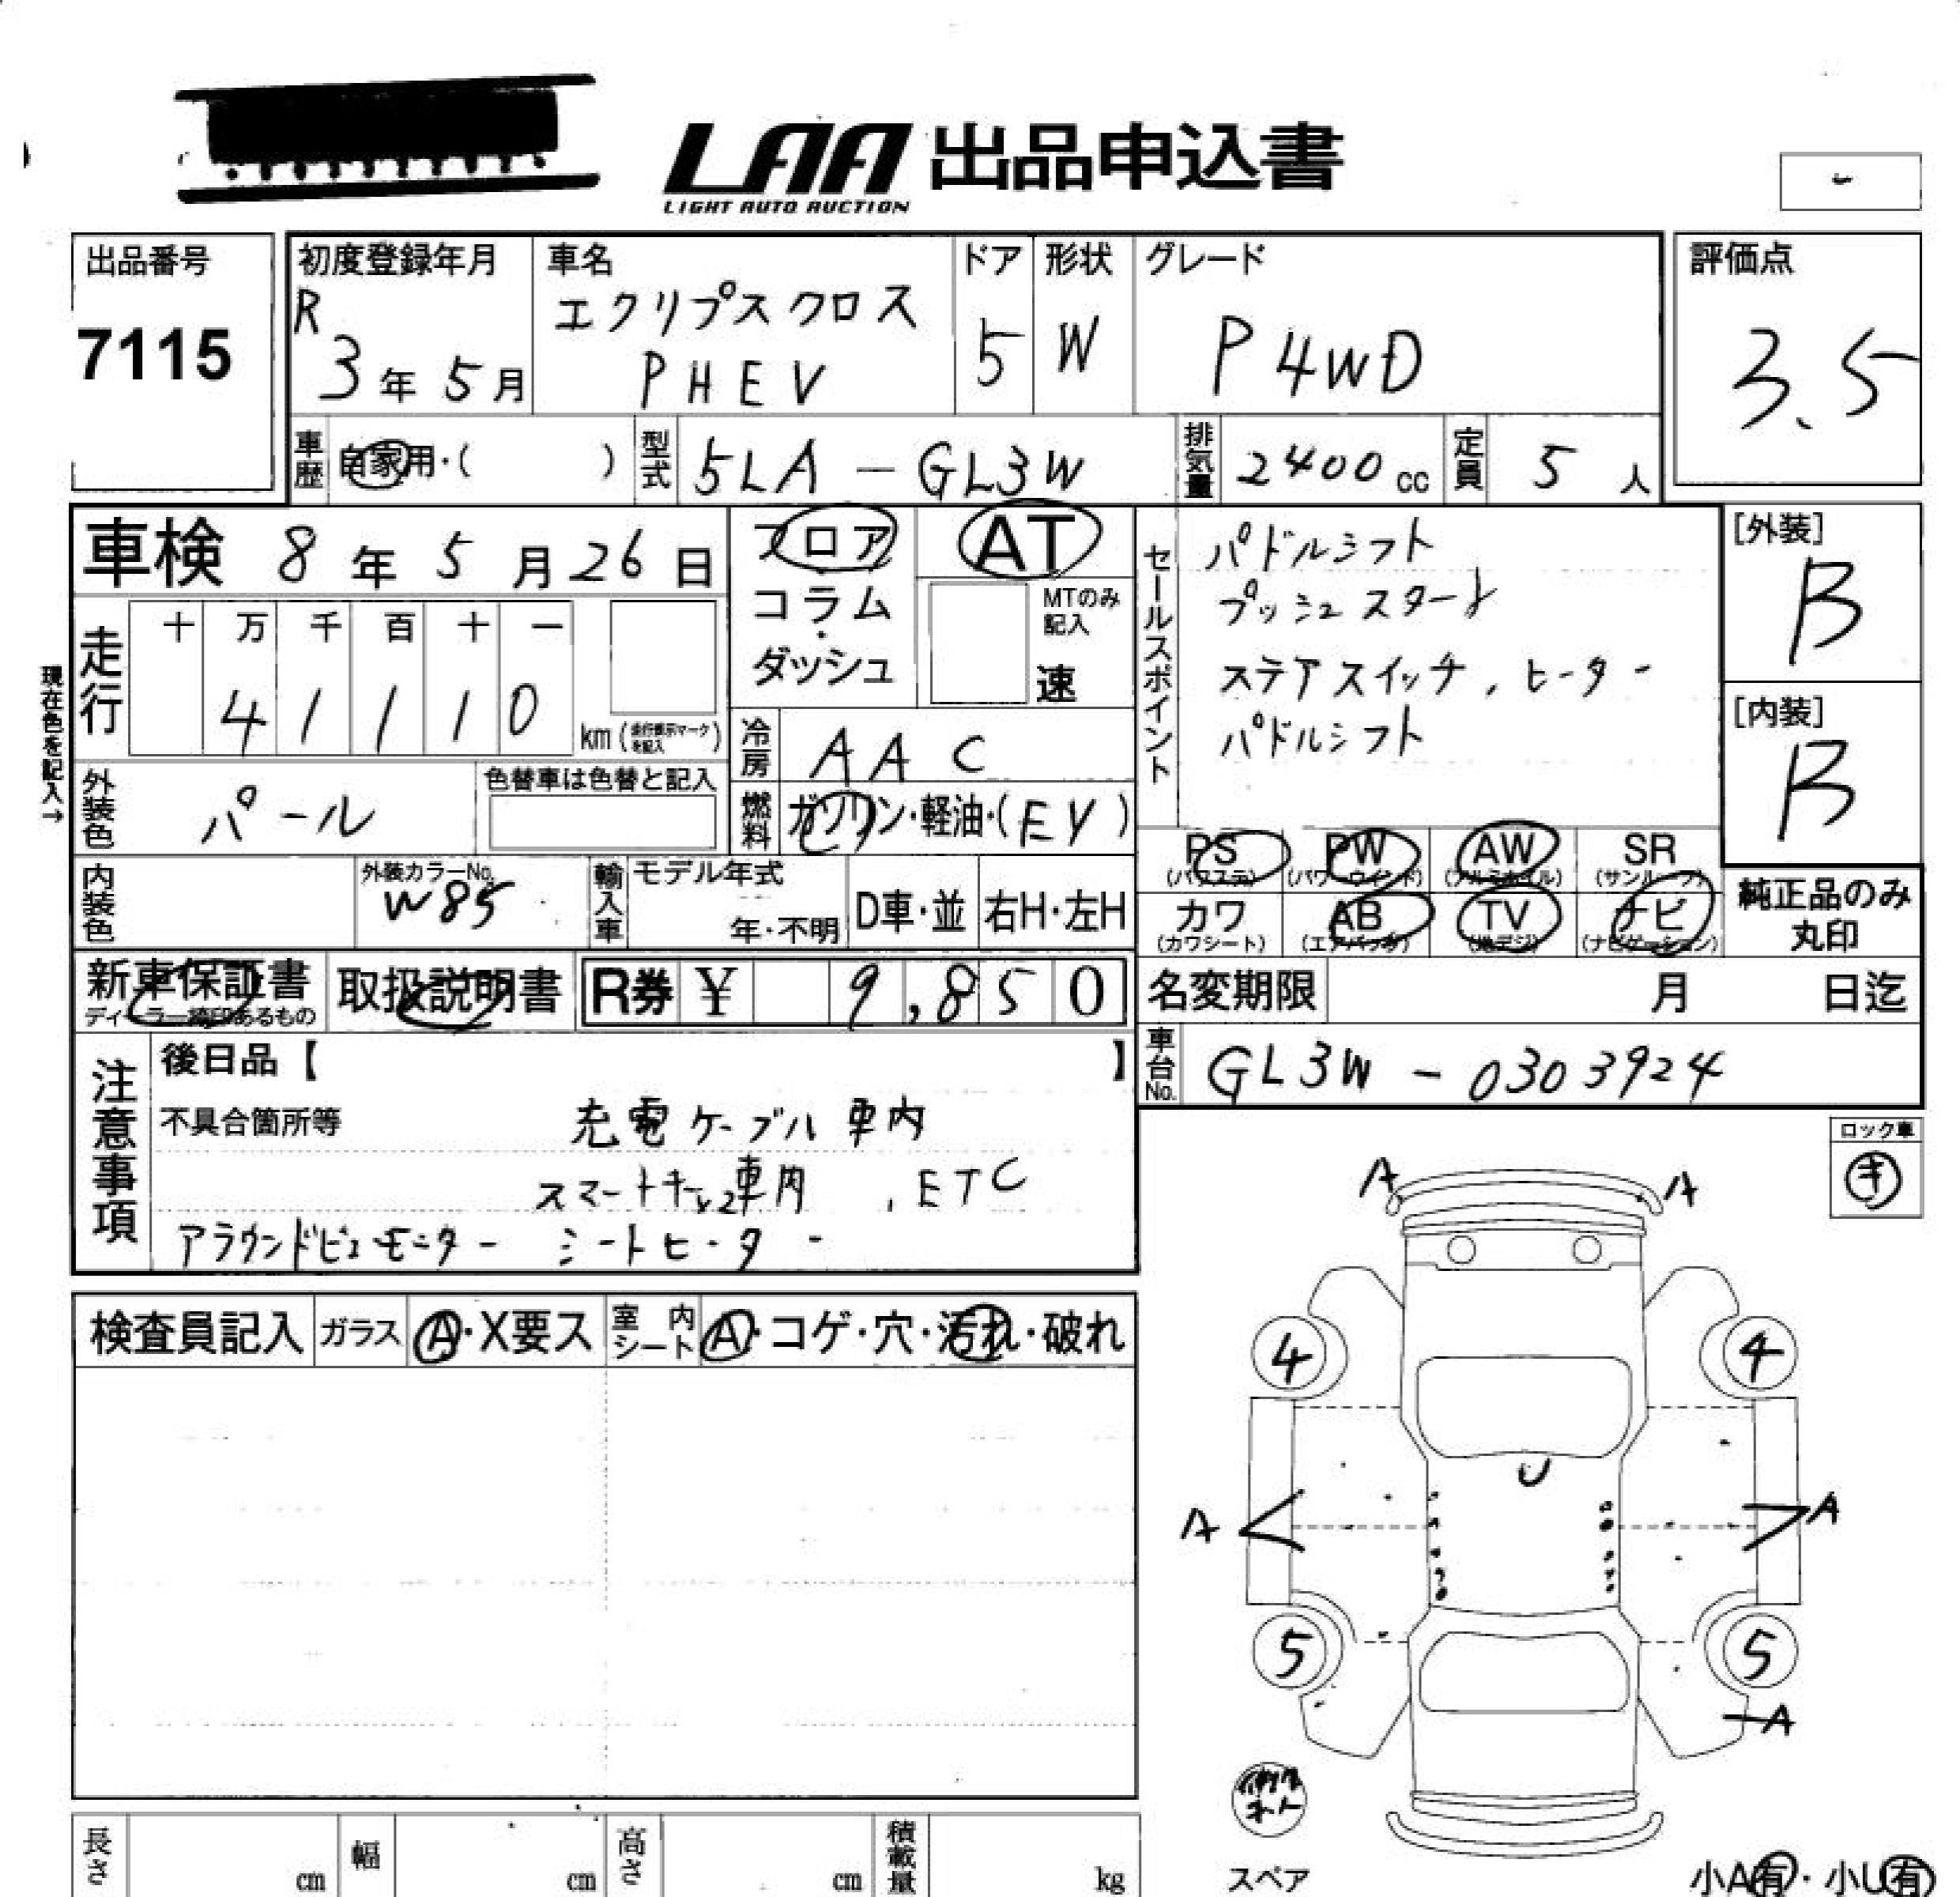 LAA 出品申込書
LIGHT AUTO AUCTION
出品番号
7115
初度登録年月
R
3年5月
車名
エクリプスクロス
PHEV
ドア
5
形状
W
グレード
P 4WD
評価点
3.5
車歴
自家用・( )
型式
5LA-GL3W
排気量
2400cc
定員
5人
車検 8年5月26日
現在色を記入→
走行
十 万 千 百 十 一
4 1 1 1 0
km(走行表示マークを記入)
フロア
コラム
・
ダッシュ
AT
MTのみ
記入
速
冷房
AAC
燃料
ガソリン・軽油・(EV)
外装色
パール
色替車は色替と記入
内装色
外装カラーNo.
W85
輸入車
モデル年式
年・不明
D車・並
右H・左H
セールスポイント
パドルシフト
プッシュスタート
ステアスイッチ、ヒーター
パドルシフト
[外装]
B
[内装]
B
PS
(パワステ)
PW
(パワーウインド)
AW
(アルミホイル)
SR
(サンルーフ)
カワ
(カワシート)
AB
(エアバッグ)
TV
(地デジ)
ナビ
(ナビゲーション)
純正品のみ
丸印
新車保証書
ディーラー捺印あるもの
取扱説明書
R券 ¥ 9,850
名変期限 月 日迄
車台No.
GL3W-0303924
注意事項
後日品【 】
不具合箇所等
充電ケーブル車内
スマートキー×2車内 、ETC
アラウンドビューモニター シートヒーター
ロック車
キ
検査員記入
ガラス
A・X要ス
室内シート
A・コゲ・穴・汚れ・破れ
A A
4 4
U
A A
5 5
A
スペア
小A有・小U有
長さ cm
幅 cm
高さ cm
積載量 kg